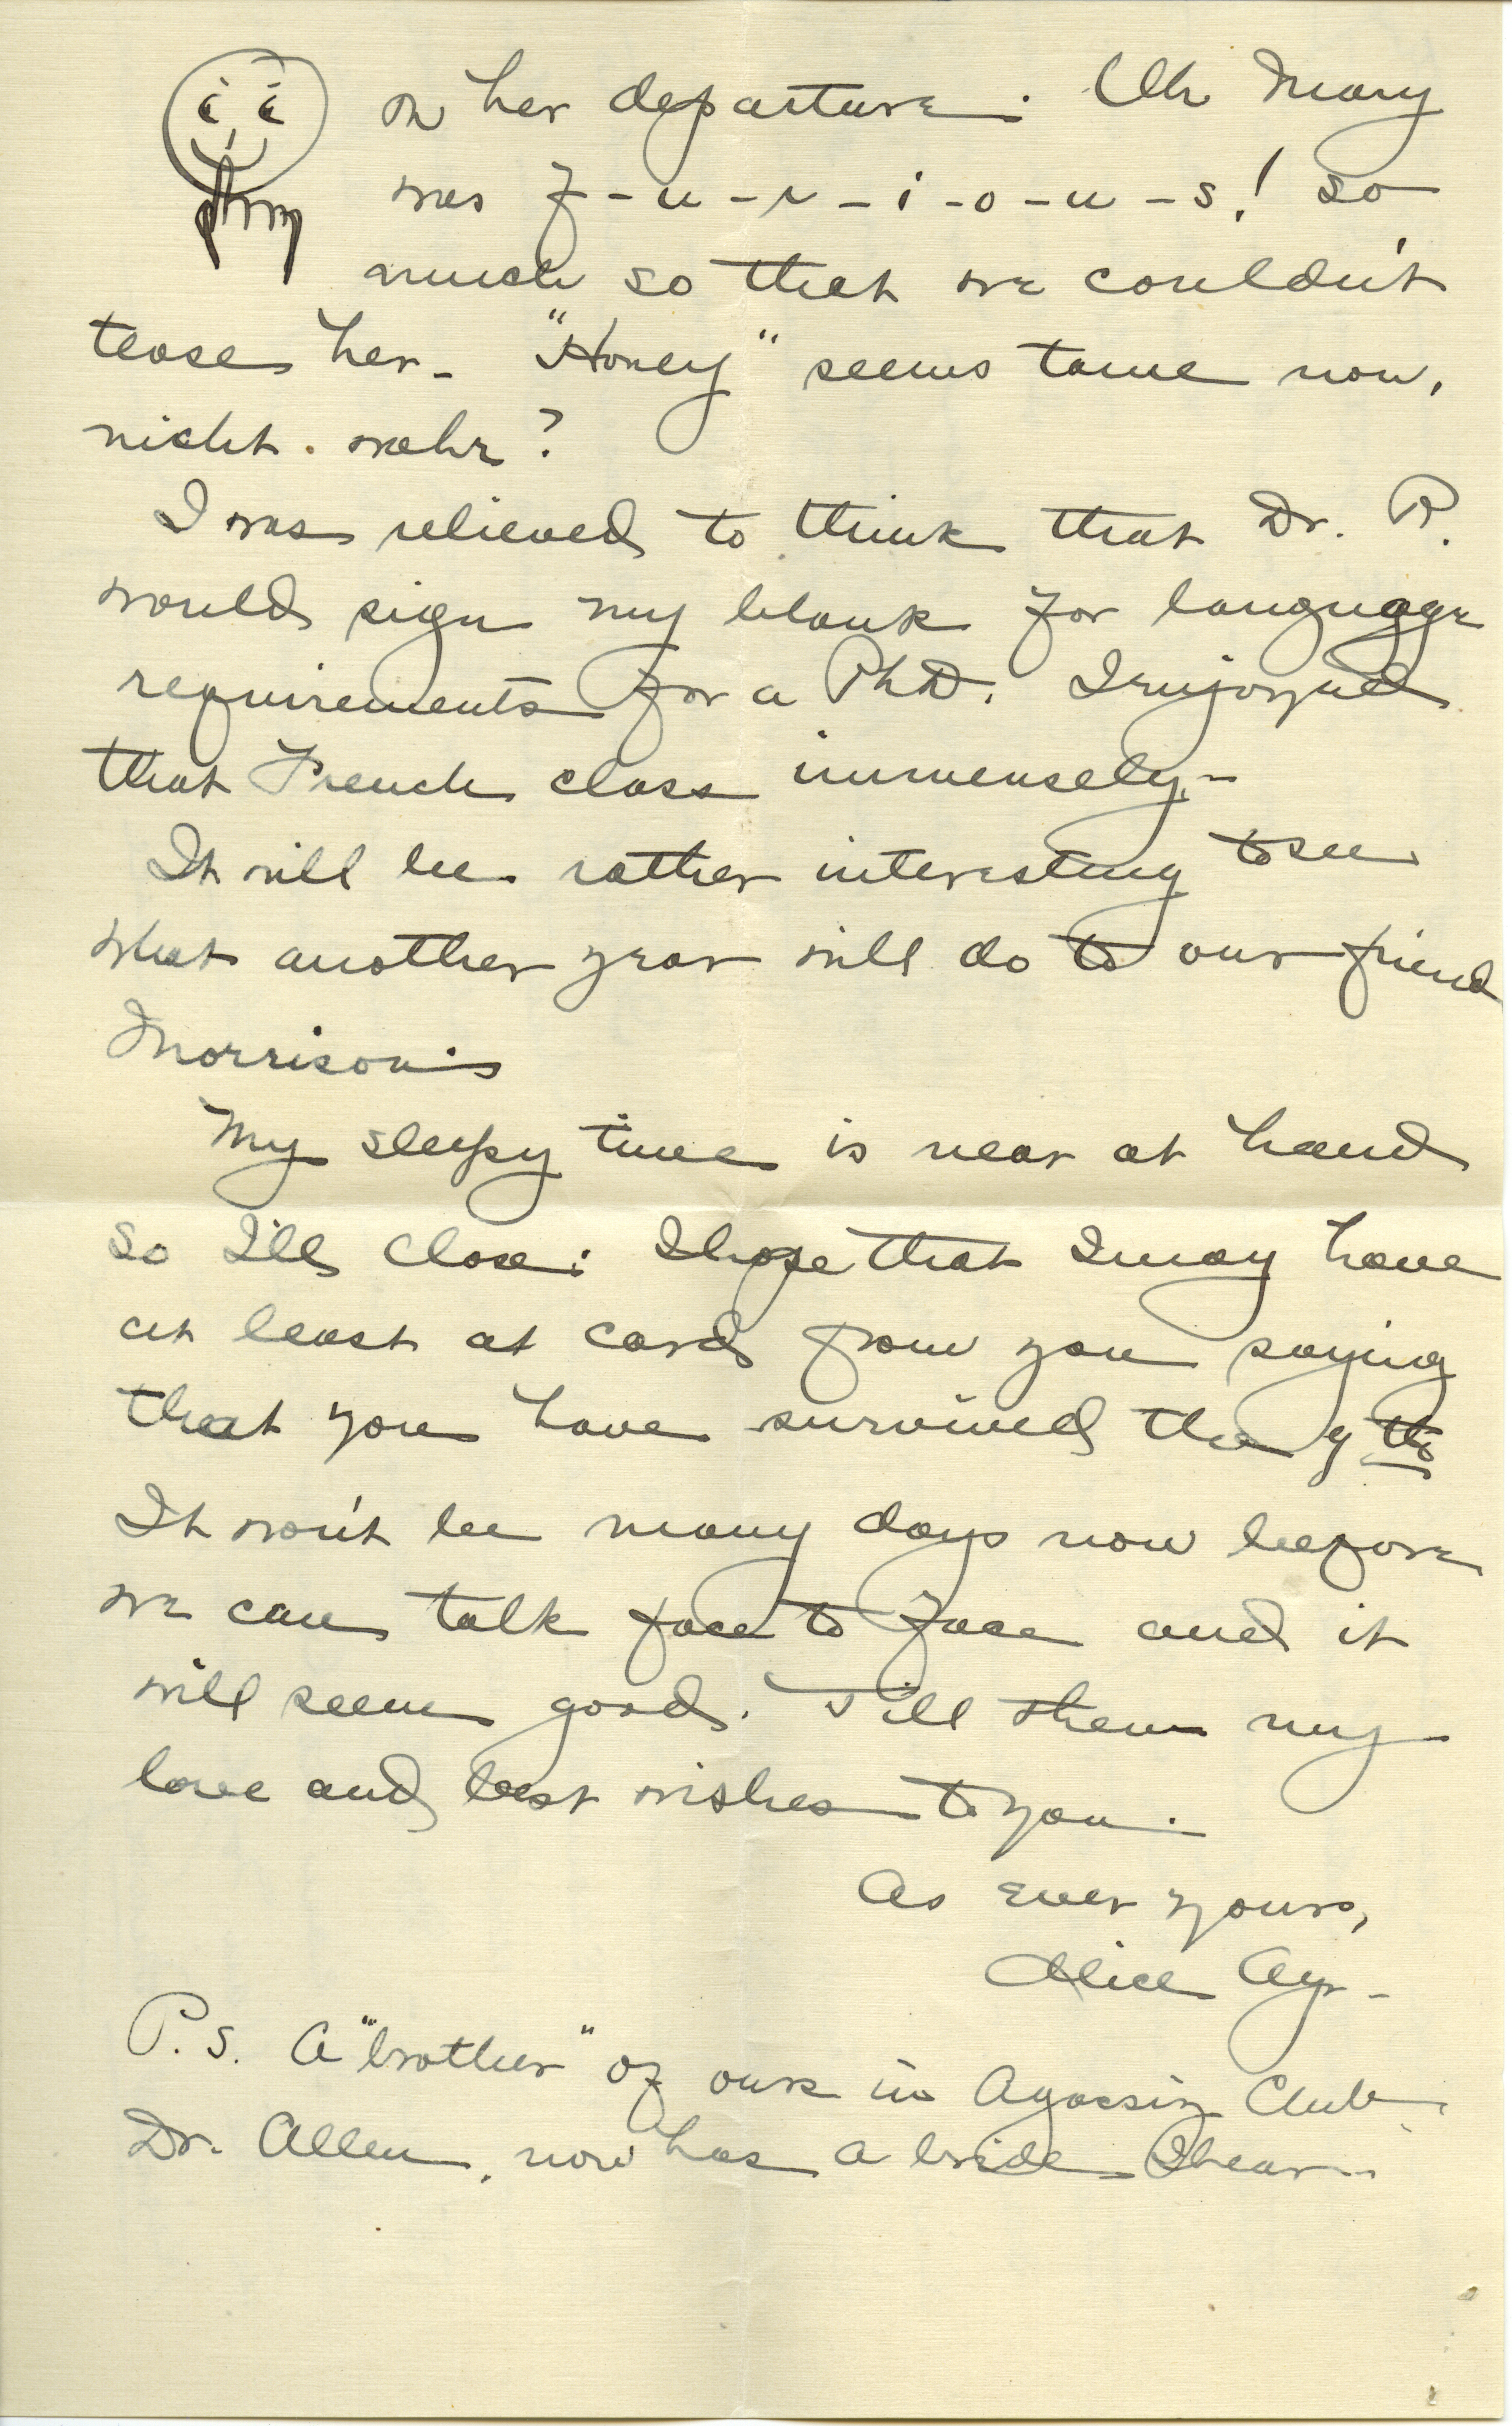 on her departure. Oh Mary
was f-u-r-i-o-u-s! so
much so that we couldn't
tease her - "Honey" seems tame now,
nicht. wahr?
I was relieved to think that Dr. R.
would sign my blank for language
requirements for a PhD. I enjoyed
that French class immensely -
It will be rather interesting to see
what another year will do to our friend
Morrison.
My sleepy time is near at hand
so I'll close: I hope that I may have
at least at card from you saying
that you have survived the 9th
It won't be many days now before
we can talk face to face and it
will seem good. Till then my
love and best wishes to you.
As ever yours,
Alice Ayr -
P.S. A "brother" of ours in Agassiz Club
Dr. Allen, now has a bride I hear.